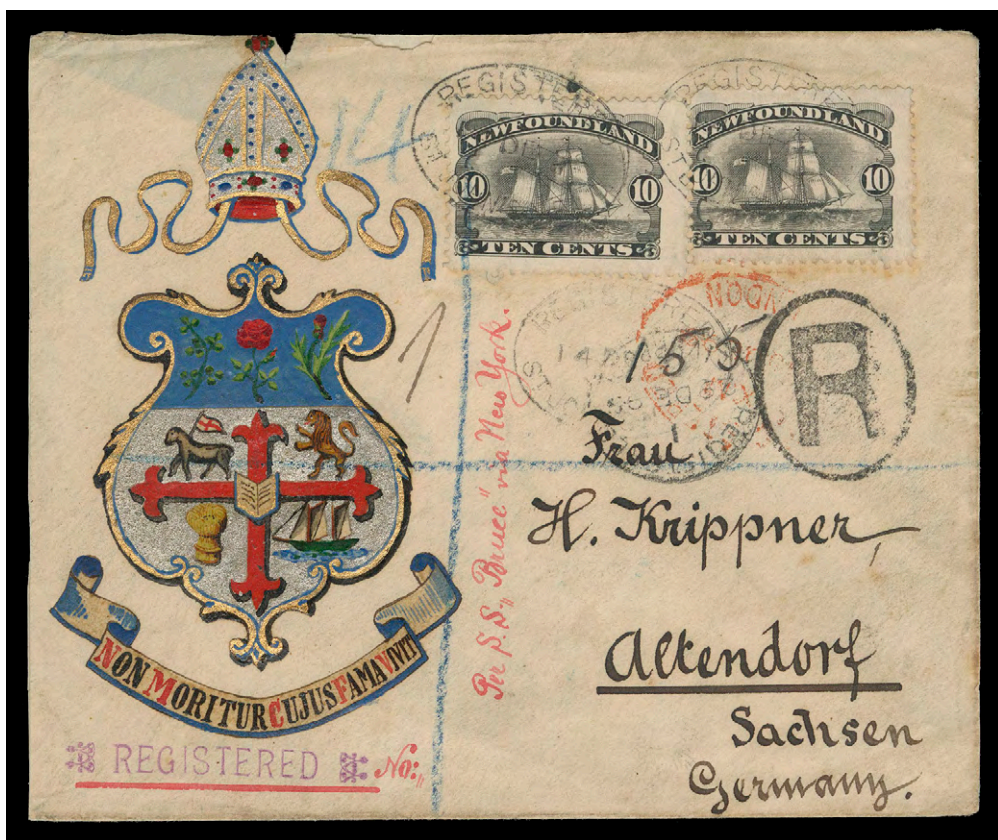 14
REGISTERED
NEWFOUNDLAND
10 10
TEN CENTS
NEWFOUNDLAND
10 10
TEN CENTS
1
Per S.S. „Bruce" via New York.
155
R
Frau
H. Krippner,
Altendorf
Sachsen
Germany.
NON MORITUR CUJUS FAMA VIVIT
REGISTERED No: